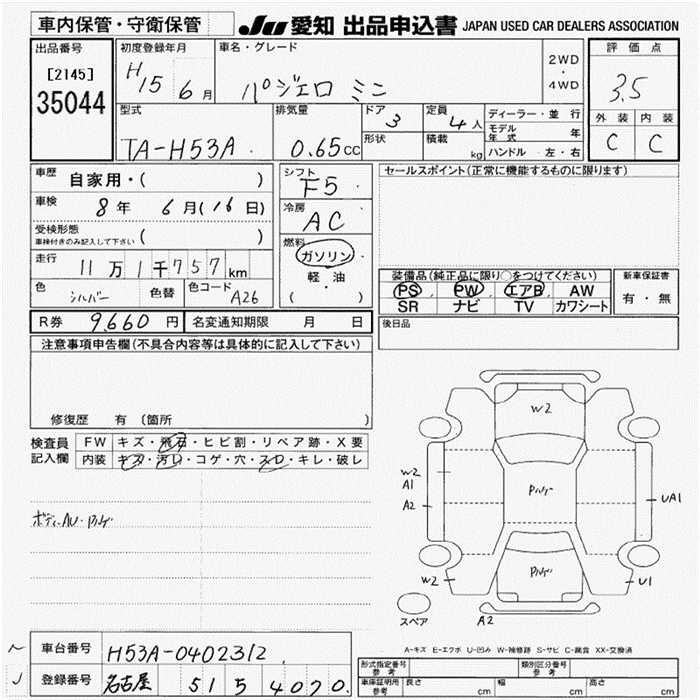 車内保管・守衛保管
JU 愛知 出品申込書 JAPAN USED CAR DEALERS ASSOCIATION
出品番号 [2145] 35044
初度登録年月 H15 6月
車名・グレード パジェロ ミニ
2WD・4WD
評価点 3.5
外装 C 内装 C
型式 TA-H53A
排気量 0.65cc
ドア 3
形状
定員 4人
積載 kg
ディーラー・並行
モデル年式 年
ハンドル 左・右
車歴 自家用・( )
車検 8年 6月(16日)
受検形態 車検付きのみ記入して下さい ( )
走行 11万1千757km
色 シルバー 色替 色コード A26
シフト F5
冷房 AC
燃料 ガソリン 軽・油 ( )
セールスポイント(正常に機能するものに限ります)
装備品(純正品に限り○をつけてください)
PS PW エアB AW
SR ナビ TV カワシート
新車保証書 有・無
R券 9,660円 名変通知期限 月 日
後日品
注意事項申告欄(不具合内容等は具体的に記入して下さい)
修復歴 有 (箇所 )
検査員記入欄
FW キズ・飛石・ヒビ割・リペア跡・X要
内装 キズ・汚レ・コゲ・穴・スレ・キレ・破レ
W2
W2
A1
A2
UA1
W2
U1
A2
スペア
A-キズ E-エクボ U-凹み W-補修跡 S-サビ C-腐食 XX-交換済
車台番号 H53A-0402312
登録番号 名古屋 515 4070
型式指定番号 参考
類別区分番号 参考
車庫証明用 参考 長さ cm 幅 cm 高さ cm